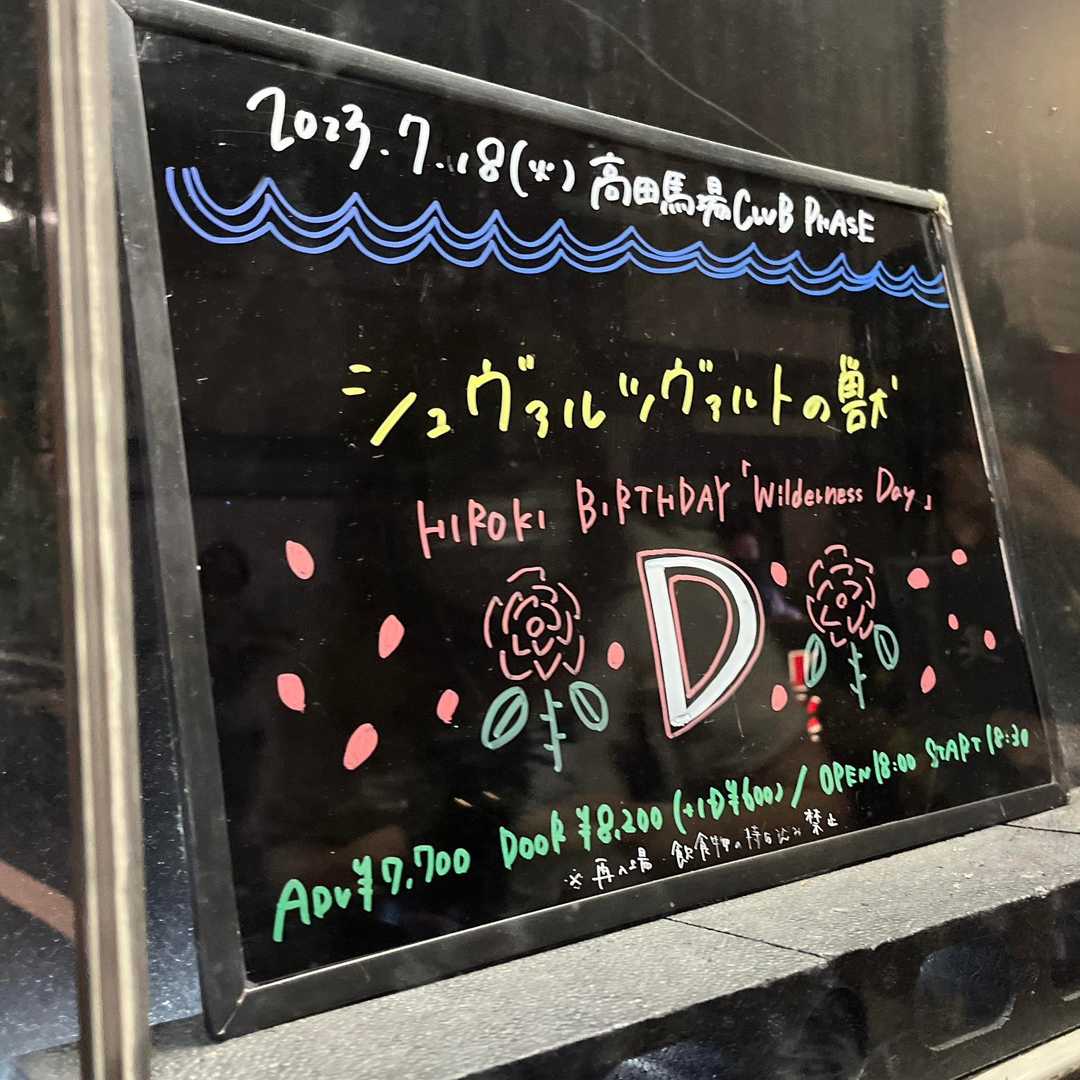 2023.7.18(火) 高田馬場CLUB PHASE
シュヴァルツヴァルトの獣
HIROKI BIRTHDAY「Wilderness Day」
D
ADV¥7,700 DOOR ¥8,200 (+1D¥600) / OPEN 18:00 START 18:30
※再入場・飲食物の持ち込み禁止